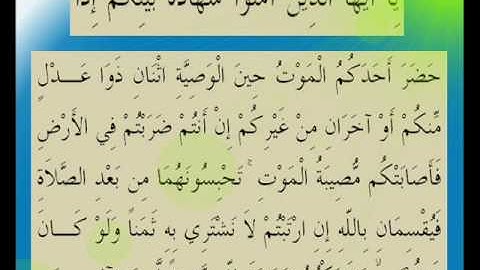 يَا أَيُّهَا الَّذِينَ آمَنُوا شَهَادَةُ بَيْنِكُمْ إِذَا
حَضَرَ أَحَدَكُمُ الْمَوْتُ حِينَ الْوَصِيَّةِ اثْنَانِ ذَوَا عَـــدْلٍ
مِّنكُمْ أَوْ آخَرَانِ مِنْ غَيْرِكُمْ إِنْ أَنتُمْ ضَرَبْتُمْ فِي الْأَرْضِ
فَأَصَابَتْكُم مُّصِيبَةُ الْمَوْتِ ۚ تَحْبِسُونَهُمَا مِن بَعْدِ الصَّلَاةِ
فَيُقْسِمَانِ بِاللَّهِ إِنِ ارْتَبْتُمْ لَا نَشْتَرِي بِهِ ثَمَنًا وَلَوْ كَـــانَ